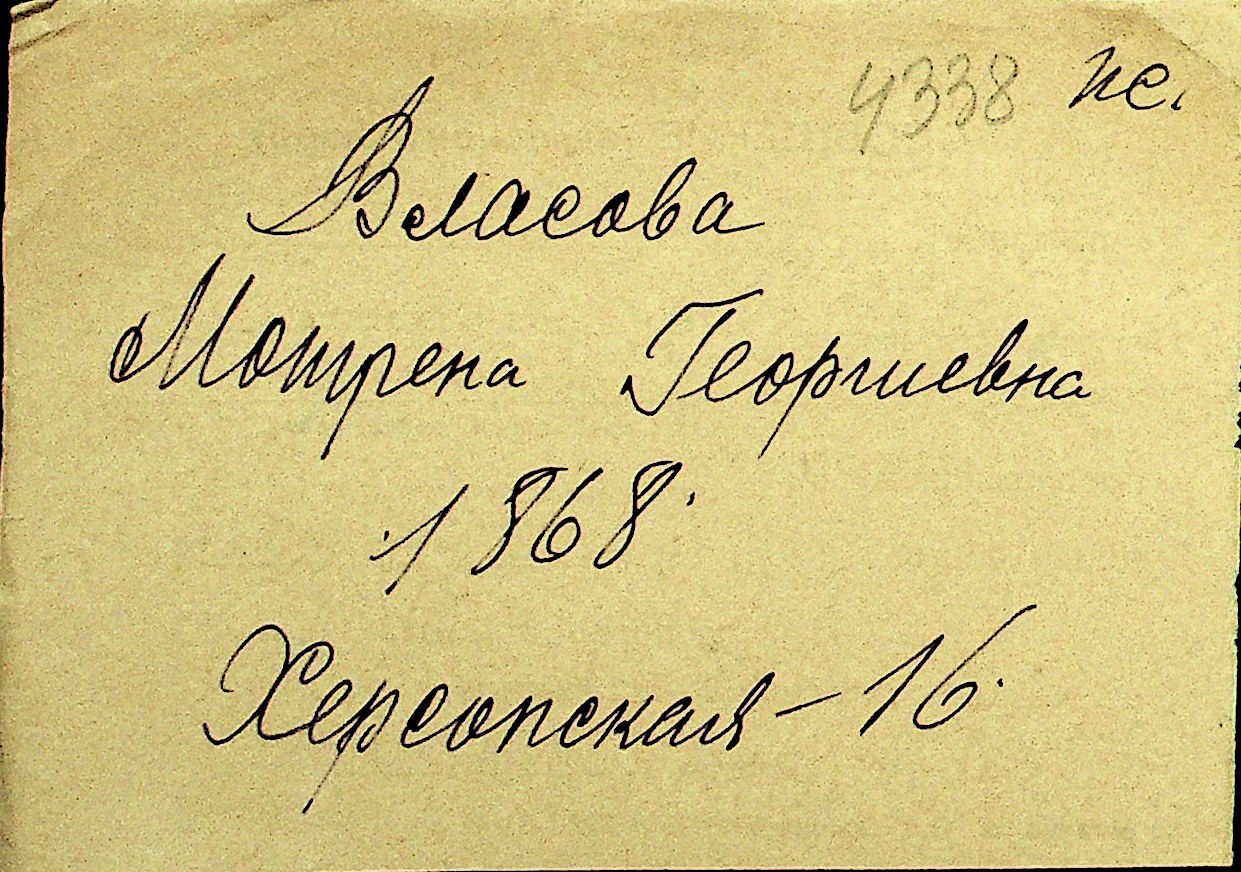 4338 пс.
Власова
Мотрена Георгиевна
1868.
Херсонская – 16.